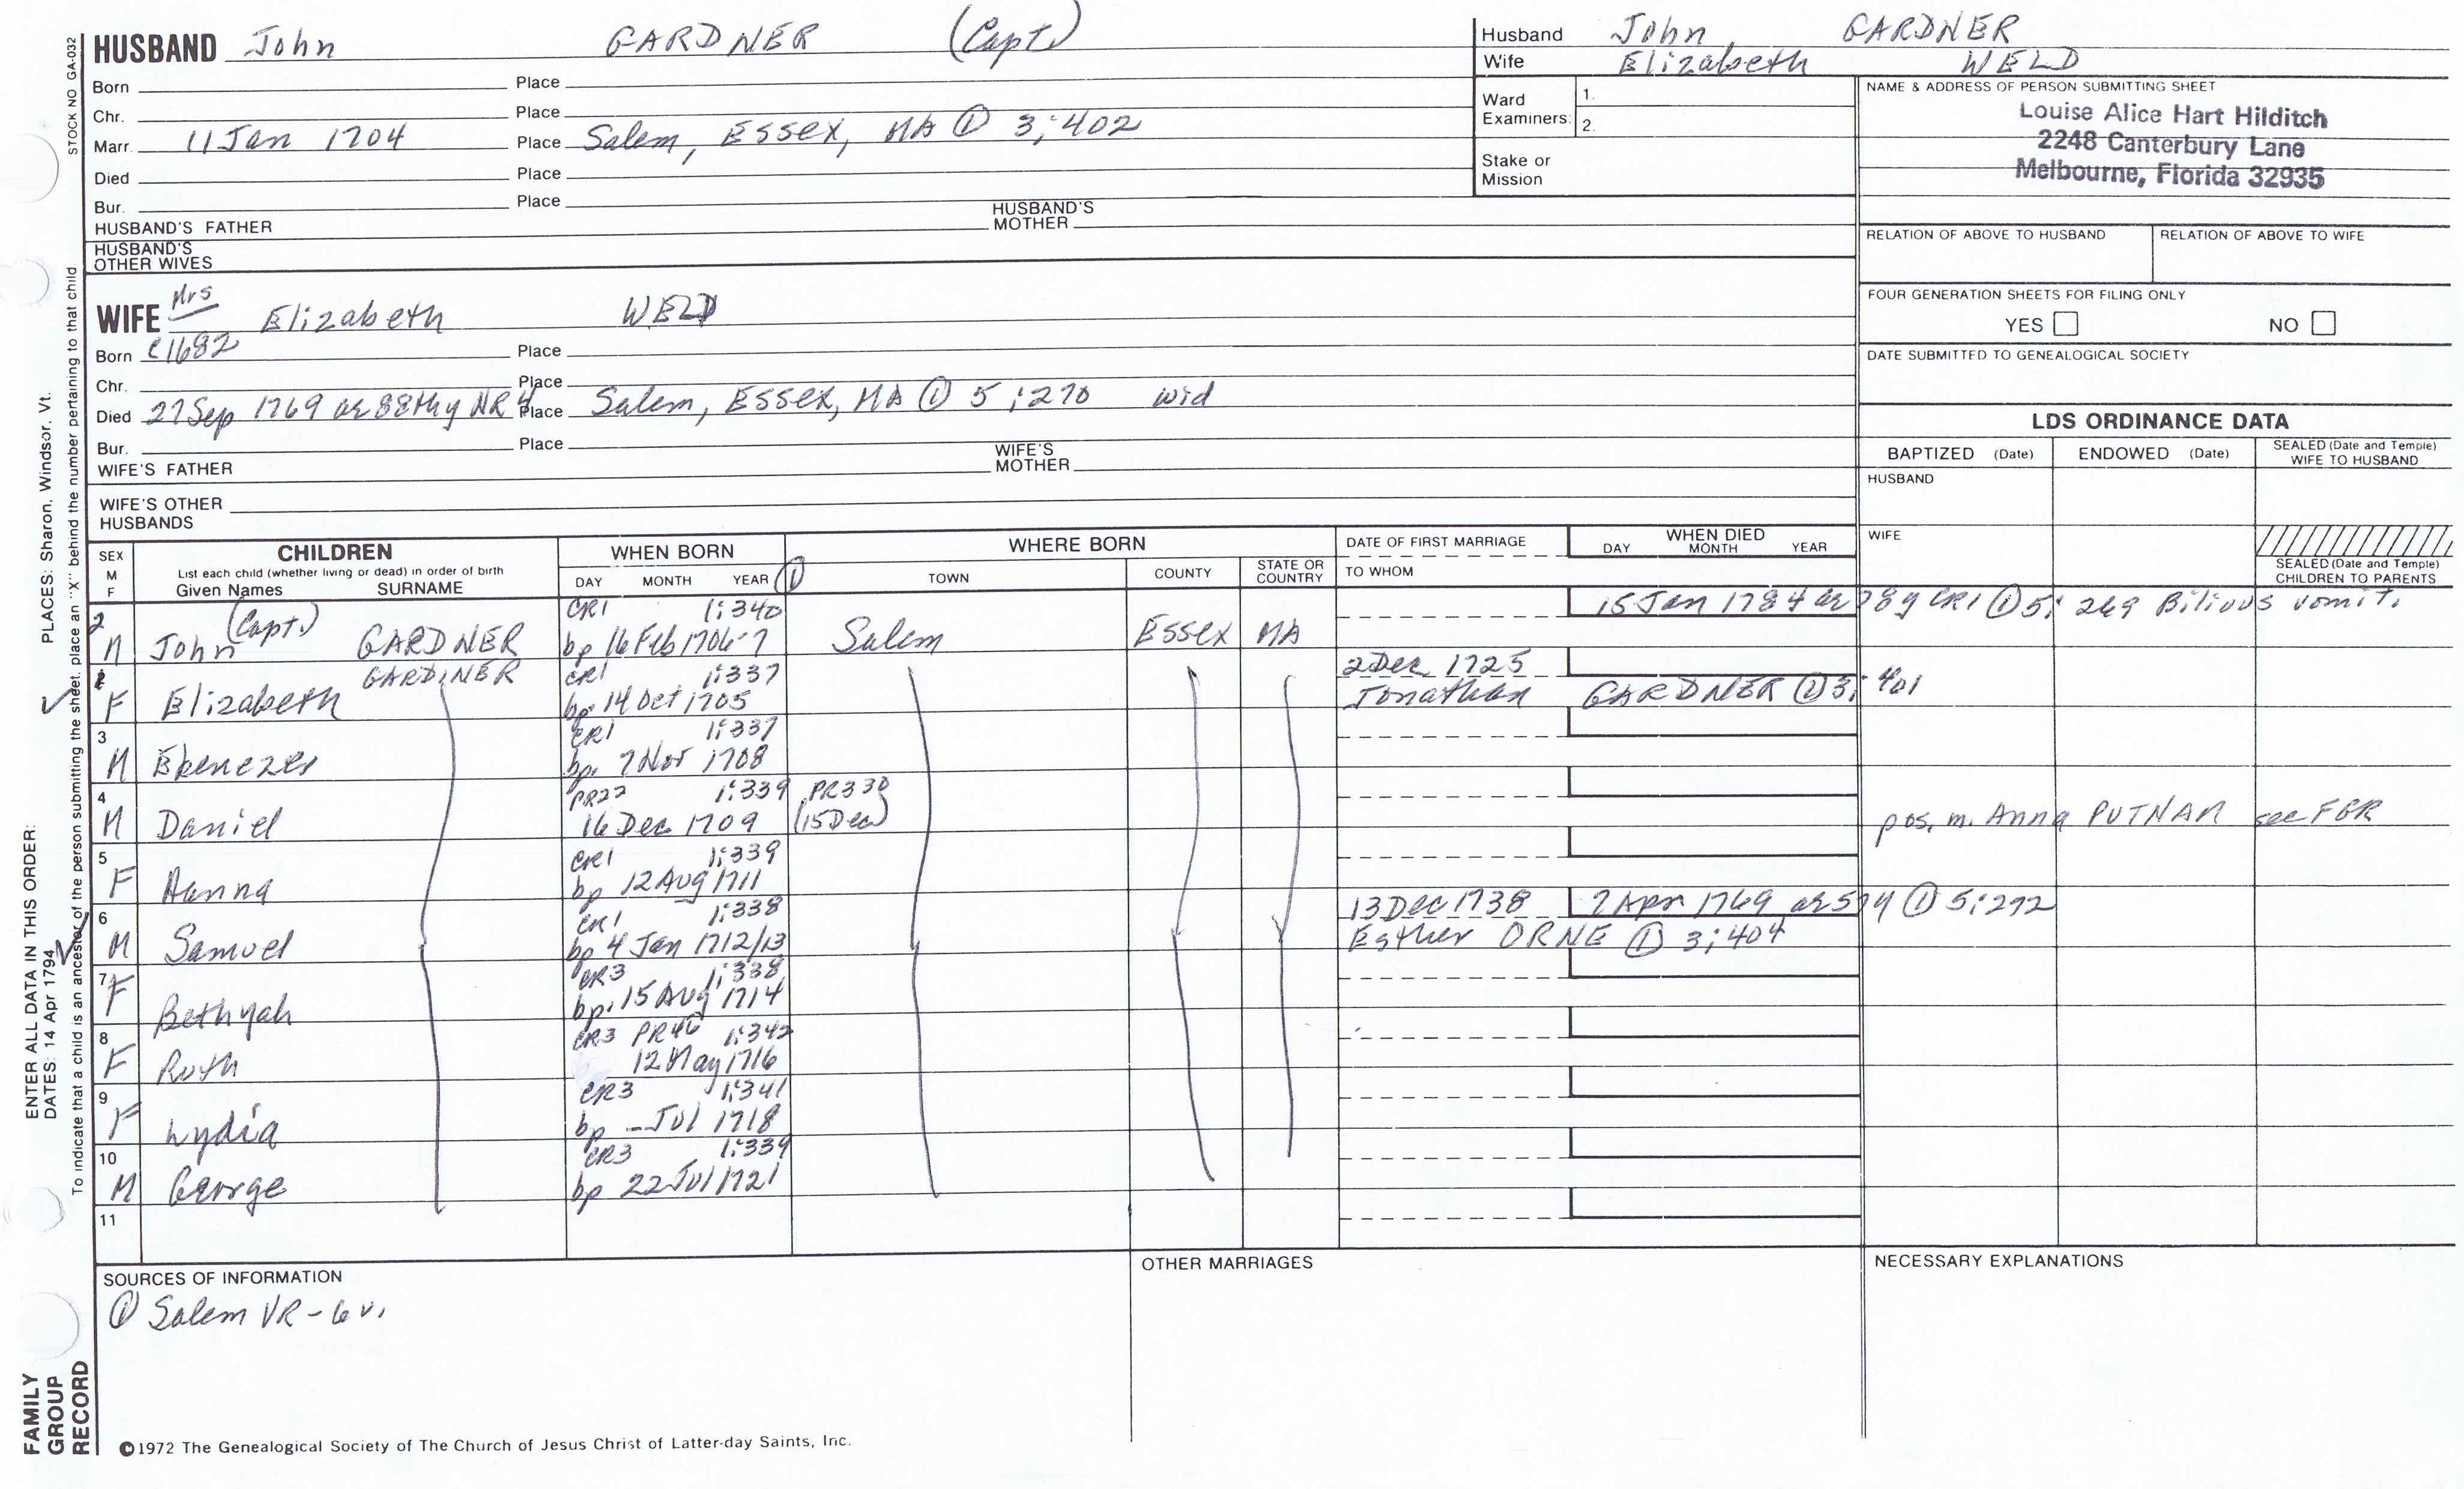 HUSBAND John GARDNER (Capt.)
Born Place
Chr. Place
Marr. 11 Jan 1704 Place Salem, Essex, MA ① 3:402
Died Place
Bur. Place
HUSBAND'S FATHER HUSBAND'S MOTHER
HUSBAND'S OTHER WIVES
WIFE Mrs Elizabeth WELD
Born c1682 Place
Chr. Place
Died 27 Sep 1769 ae 88thy NR4 Place Salem, Essex, MA ① 5:270 wid
Bur. Place
WIFE'S FATHER WIFE'S MOTHER
WIFE'S OTHER HUSBANDS
Husband John GARDNER
Wife Elizabeth WELD
Ward Examiners: 1.
2.
Stake or Mission
NAME & ADDRESS OF PERSON SUBMITTING SHEET
Louise Alice Hart Hilditch
2248 Canterbury Lane
Melbourne, Florida 32935
RELATION OF ABOVE TO HUSBAND RELATION OF ABOVE TO WIFE
FOUR GENERATION SHEETS FOR FILING ONLY
YES NO
DATE SUBMITTED TO GENEALOGICAL SOCIETY
LDS ORDINANCE DATA
BAPTIZED (Date) ENDOWED (Date) SEALED (Date and Temple) WIFE TO HUSBAND
HUSBAND
WIFE
SEALED (Date and Temple) CHILDREN TO PARENTS
SEX M F
CHILDREN
List each child (whether living or dead) in order of birth
Given Names SURNAME
WHEN BORN
DAY MONTH YEAR ①
WHERE BORN
TOWN COUNTY STATE OR COUNTRY
DATE OF FIRST MARRIAGE
TO WHOM
WHEN DIED
DAY MONTH YEAR
2 (Capt.) CR1 1:340 15 Jan 1784 ae 78y CR1 ① 5: 269 Bilious vomit.
M John GARDNER bp 16 Feb 1706-7 Salem Essex MA
1 GARDINER CR1 1:337 2 Dec 1725
F Elizabeth bp. 14 Oct 1705 Jonathan GARDNER ① 3: 401
3 CR1 1:337
M Ebenezer bp. 7 Nov 1708
4 PR22 1:339 PR330
M Daniel 16 Dec 1709 (15 Dec) pos. m. Anna PUTNAM see FGR
5 CR1 1:339
F Hanna bp 12 Aug 1711
6 CR1 1:338 13 Dec 1738 7 Apr 1769 ae 57y ① 5:272
M Samuel bp 4 Jan 1712/13 Esther ORNE ① 3:404
7 CR3 1:338
F Bethyah bp. 15 Aug 1714
8 CR3 PR46 1:342
F Ruth 12 May 1716
9 CR3 1:341
F Lydia bp — Jul 1718
10 CR3 1:339
M George bp 22 Jul 1721
11
SOURCES OF INFORMATION
① Salem VR - 6 v.
OTHER MARRIAGES
NECESSARY EXPLANATIONS
©1972 The Genealogical Society of The Church of Jesus Christ of Latter-day Saints, Inc.
STOCK NO GA-032
To indicate that a child is an ancestor of the person submitting the sheet, place an "X" behind the number pertaining to that child
ENTER ALL DATA IN THIS ORDER:
DATES: 14 Apr 1794 PLACES: Sharon, Windsor, Vt.
FAMILY
GROUP
RECORD